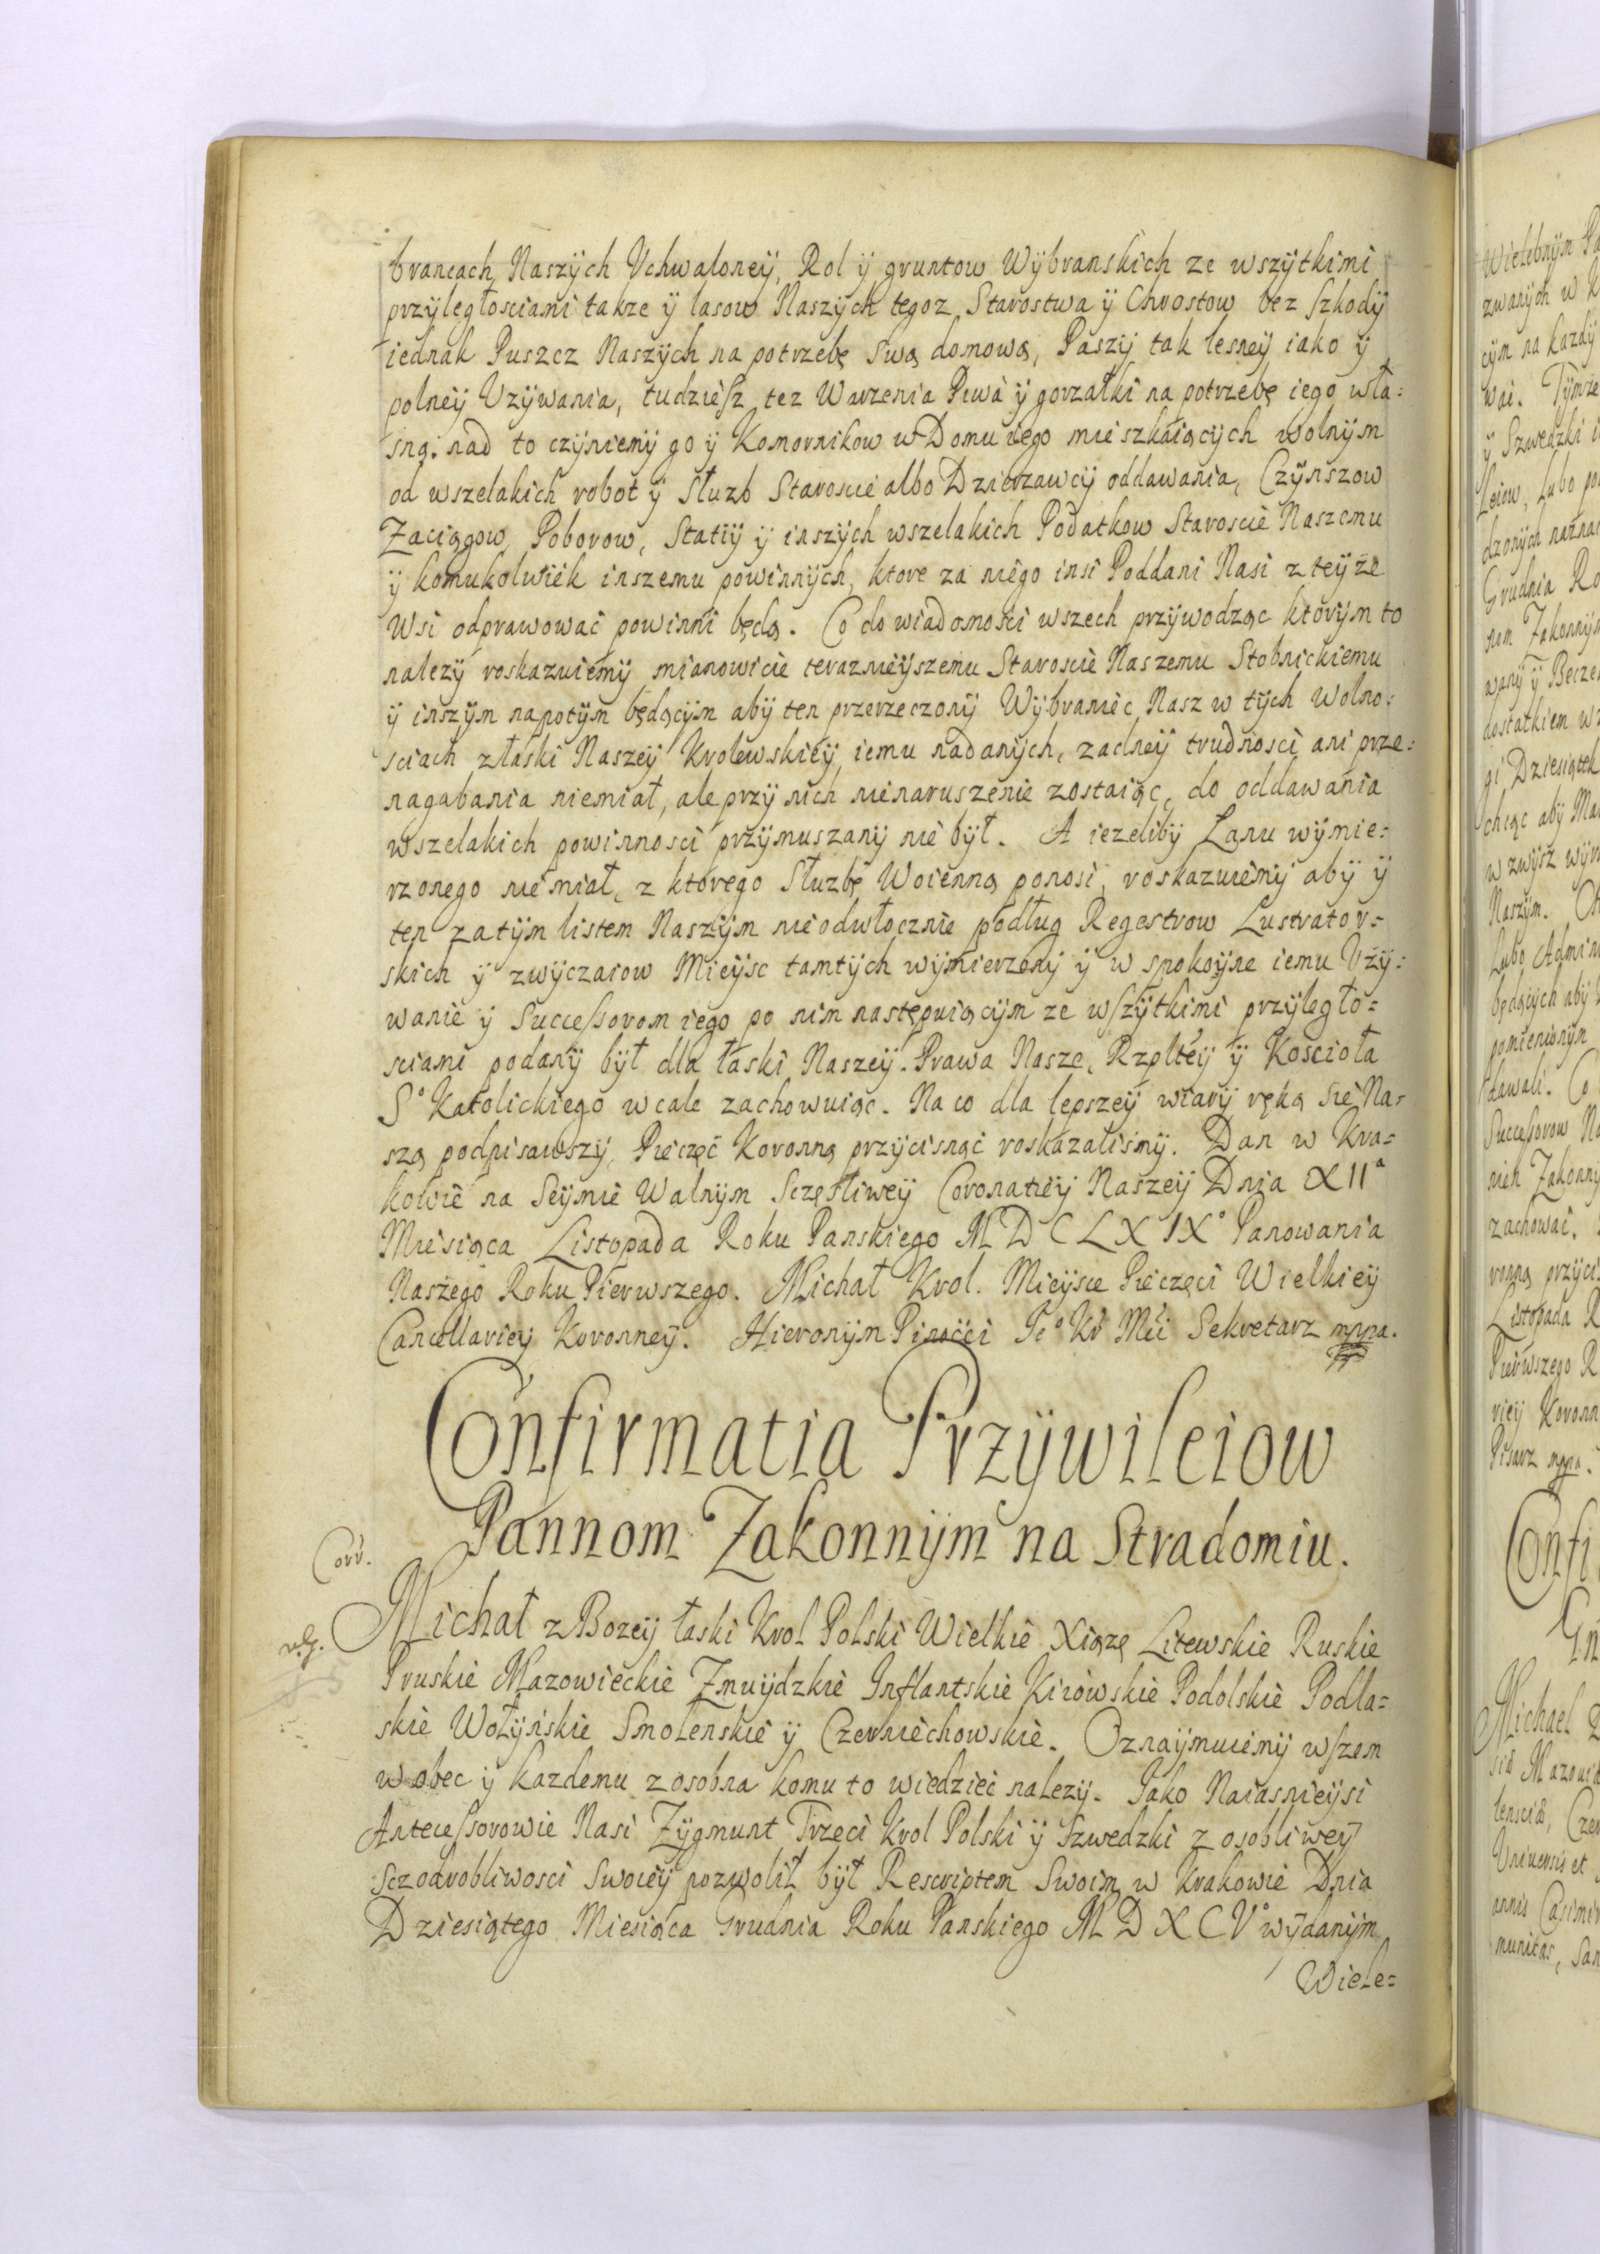 brancach Naszÿch Vchwaloneÿ, Rol ÿ gruntow Wÿbranskich ze wszÿtkimi
przÿległosciami takze ÿ lasow Naszÿch tegoz Starostwa ÿ Chrostow bez szkodÿ
iednak Puszcz Naszÿch na potrzebę swą domową, Paszÿ tak lesneÿ iako ÿ
polneÿ Vzÿwania, tudziesz tez Warzenia Piwa ÿ gorzałki na potrzebę iego wła=
sną. nad to czÿniemÿ go ÿ Komornikow w Domu iego mieszkaiącÿch wolnÿm
od wszelakich robot ÿ Służb Staroscie albo Dzierzawcÿ oddawania, Czÿnszow
Zaciągow, Poborow, Statiÿ ÿ inszÿch wszelakich Podatkow Staroscie Naszemu
ÿ komukolwiek inszemu powinnÿch, ktore za niego insi Poddani Nasi z teÿze
Wsi odprawować powinni będą. Co do wiadomości wszech przÿwodząc ktorÿm to
nalezÿ roskazuiemÿ mianowicie terazniéÿszemu Staroscie Naszemu Stobnickiemu
ÿ inszÿm napotÿm będącÿm abÿ ten przerzeczonÿ Wÿbraniec Nasz w tÿch Wolno=
sciach złaski Naszeÿ Krolewskieÿ iemu nadanÿch, zadneÿ trudnosci ani prze=
nagabania niemiał, ale przÿ nich nienaruszenie zostaiąc, do oddawania
wszelakich powinnosci przÿmuszanÿ nie bÿł. A iezelibÿ Łanu wÿmie=
rzonego niemiał, z ktorego Słuzbę Woienną ponosi, roskazuiemÿ abÿ ÿ
ten zatÿm listem Naszÿm nieodwłocznie podług Regestrow Lustrator=
skich ÿ zwÿczaiow Mieÿsc tamtÿch wÿmierzonÿ ÿ w spokoÿne iemu Vżÿ=
wanie ÿ Successorom iego po nim następuiącÿm ze wszÿtkimi przÿległo=
sciami podanÿ bÿł dla łaski Naszeÿ. Prawa Nasze, Rzpltéÿ ÿ Koscioła
S° Katolickiego wcale zachowuiąc. Na co dla lepszeÿ wiarÿ ręką się Na=
szą podpisawszÿ, Pieczęć Koronną przÿcisnąć roskazaliśmÿ. Dan w Kra=
kowie na Seÿmie Walnÿm Sczęśliweÿ Coronatieÿ Naszeÿ Dnia XII<sup>a</sup>
Miesiąca Listopada Roku Panskiego M D C L X IX° Panowania
Naszego Roku Pierwszego. Michał Krol. Mieÿsce Pieczęci Wielkieÿ
Cancellarieÿ Koronneÿ. Hieronÿm Pinocci Je° Kr Mći Sekretarz mppa.
Confirmatia Przÿwileiow
Pannom Zakonnÿm na Stradomiu.
Corr.
Michał z Bozeÿ łaski Krol Polski Wielkie Xiązę Litewskie Ruskie
Pruskie Mazowieckie Zmuÿdzkie Inflantskie Kiiowskie Podolskie Podla=
skie Wołÿńskie Smolenskie ÿ Czerniechowskie. Oznaÿmuiemÿ wszem
wobec ÿ kazdemu zosobna komu to wiedzieć nalezÿ. Jako Naiasnieÿsi
Antecessorowie Nasi Zÿgmunt Trzeci Krol Polski ÿ Szwedzki z osobliweÿ
sczodrobliwosci swoieÿ pozwolił bÿł Rescriptem Swoim w Krakowie Dnia
Dziesiątego Miesiąca Grudnia Roku Panskiego M D X C V° wÿdanÿm
Wiele=